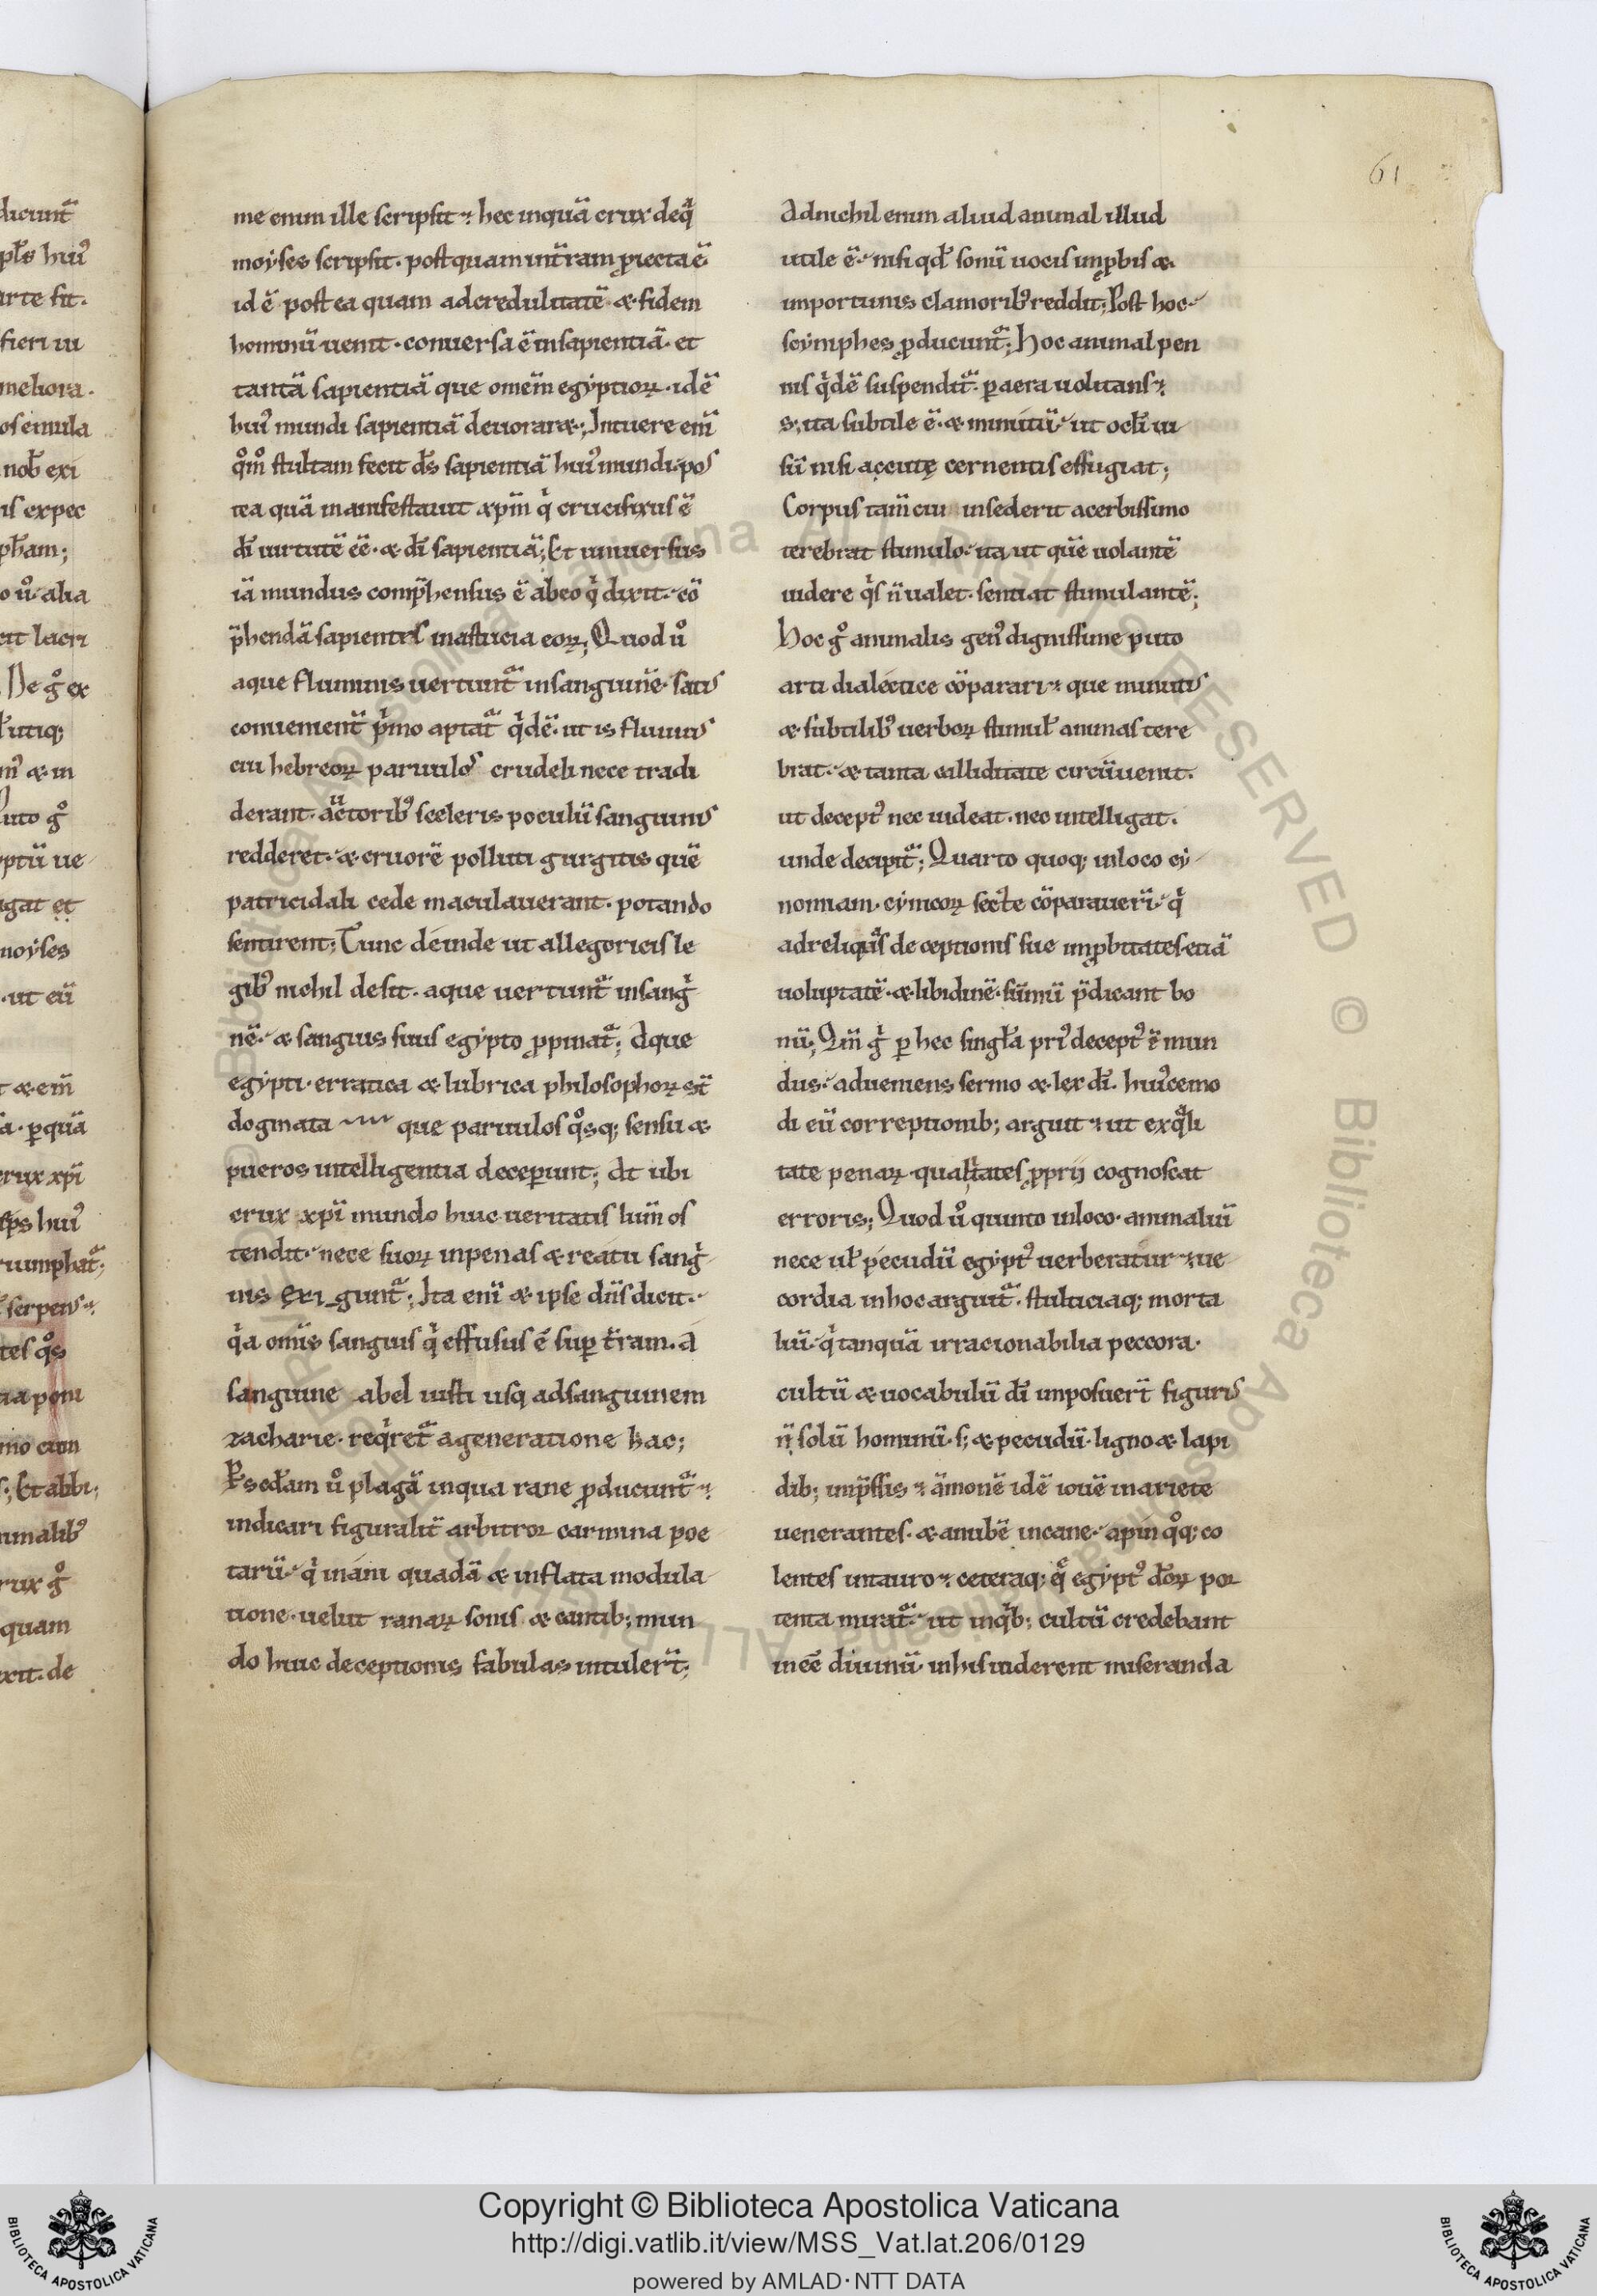 61
me enim ille scripsit. hec inquā crux deq̇
moyses scripsit. postquam int̄ram ꝓiecta ē
id ē postea quam adcredulitatē & fidem
hominū uenit. conuersa ē insapientiā. et
tantā sapientiā que omēm egyptioꝝ. idē
huiꝰ mundi sapientiā deuoraræ; Intuere eni̅
q̊m̊ stultam fecit d̅s sapientiā huiꝰ mundi. pos
tea quā manifestauit xp̅m q̇ crucifixus ē
di̅ uirtutē ēē. & di̅ sapientiā; Et uniuersus
iā mundus comp̅hensus ē abeo q̇ dixit. eō
p̅hendā sapientes inasticia eoꝝ; Quod ů
aque fluminis uertunt̉ insanguinē. satis
conuenient̅ ṗmo aptat̉ q̇dē. ut is fluuius
cui hebreoꝝ paruulos crudeli nece tradi
derant. auctoribꝰ sceleris poculū sanguinis
redderet. & cruorē polluti gurgitis quē
patricidali cede maculauerant. potando
sentirent; Tunc deinde ut allegoricis le
gibꝰ nichil desit. aque uertunt̉ insangi̇
nē. & sanguis suus egypto ꝓpinat̉; Aque
egypti. erratica & lubrica philosophoꝝ st̅
dogmata que paruulos q̊sq; sensu &
pueros intelligentia deceꝑunt; At ubi
crux xp̅i mundo huic ueritatis lum̅ os
tendit. nece suoꝝ inpenas & reatu sangi̇
nis exigunt̉; Ita eni̅ & ipse dn̅s dicit.
q̇a omīs sanguis q̇ effusus ē suꝑ t̅ram. a
sanguine abel iusti usq adsanguinem
zacharie. req̇ret̉ ageneratione hac;
P̱ sedam ů plagā inqua rane ꝓducunt̉.
indicari figuralit̅ arbitror carmina poe
tarū. q̇ inani quadā & inflata modula
tione. uelut ranaꝝ sonis & cantib; mun
do huic deceptionis fabulas intulert̅;
Adnichil enim aliud animal illud
utile ē. nisi qd̅ sonū uocis inꝓbis &
importunis clamoribꝰ reddit; Post hoc
scymphes ꝓducunt̉; Hoc animal pen
nis q̇dē suspendit̉. ꝑ aera uolitans.
s; ita subtile ē. & minutū. ut ocli̅ ui
sū nisi accutę cernentis effugiat;
Corpus tam̅ cui insederit acerbissimo
terebrat stimulo. ita ut quē uolantē
uidere q̇s n̅ ualet. sentiat stimulantē;
Hoc g̊ animalis genꝰ dignissime puto
arti dialectice cōparari. que minutis
& subtilibꝰ uerboꝝ stimul̅ animas tere
brat. & tanta calliditate circūuenit.
ut deceptꝰ nec uideat. nec intelligat.
unde decipit̉; Quarto quoq; inloco cy
nomiam. cynicoꝝ secte cōparaueri̅. q̇
adreliquas deceptionis sue inꝓbitates etiā
uoluptatē. & libidinē. sūmū p̅dicant bo
nū; Qm̅ g̊ ꝑ hec singl̅a priꝰ deceptꝰ ē mun
dus. adueniens sermo & lex di̅. huiꝰcemo
di eū correptionib; arguit. ut exq̉li
tate penaꝝ. qualitates ꝓprij cognoscat
erroris; Quod ů quinto inloco. animaliū
nece ul̅ pecudū egyptꝰ uerberatur. ue
cordia inhoc arguit̉. stulticiaq; morta
liū. q̇ tanquā irracionabilia peccora.
cultū & uocabulū di̅ imposuert̅ figuris
n̅ solū hominū. s; & pecudū. ligno & lapi
dib; imp̅ssis. āmonē idē iouē inariete
uenerantes. & anubē incane. apin q̊q; co
lentes intauro. ceteraq; q̄ egyptꝰ deoꝝ por
tenta mirat̉. ut inq̇b; cultū credebant
inēē diuinū. inhis uiderent miseranda
Copyright © Biblioteca Apostolica Vaticana
http://digi.vatlib.it/view/MSS_Vat.lat.206/0129
powered by AMLAD·NTT DATA